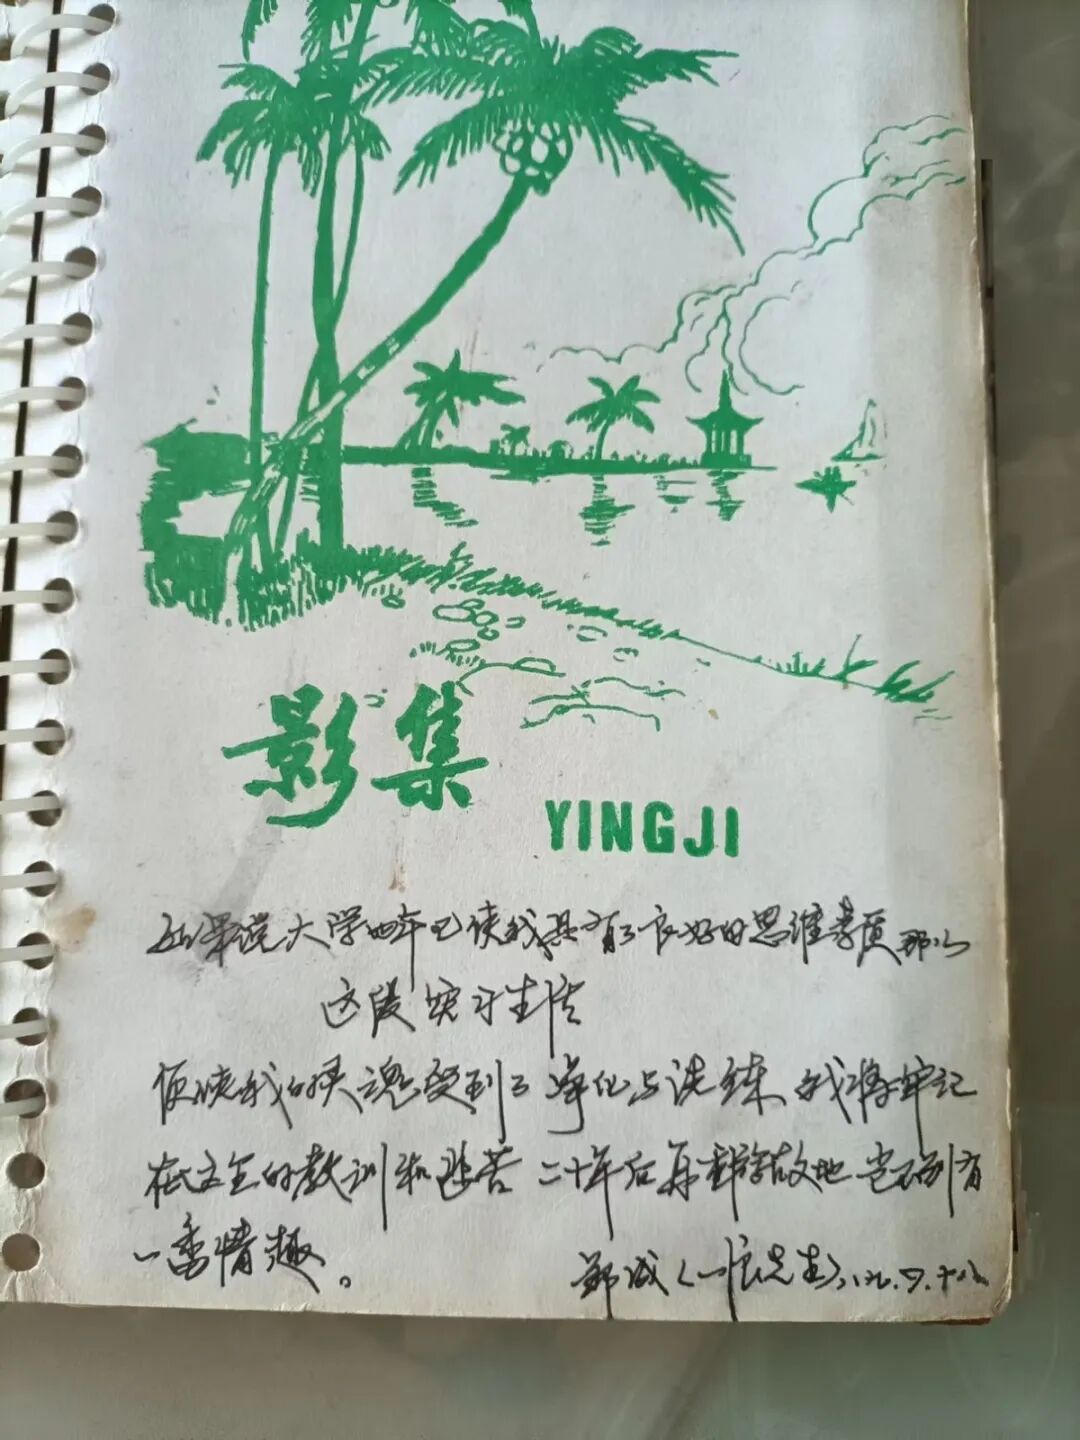 影集
YINGJI
如果说大学四年已使我具有了良好的思维素质 那么
这段实习生活
便使我的灵魂受到了净化与洗练 我将牢记
在这里的教训和悲苦 二十年后再辞故地 岂不别有
一番情趣。
郑成